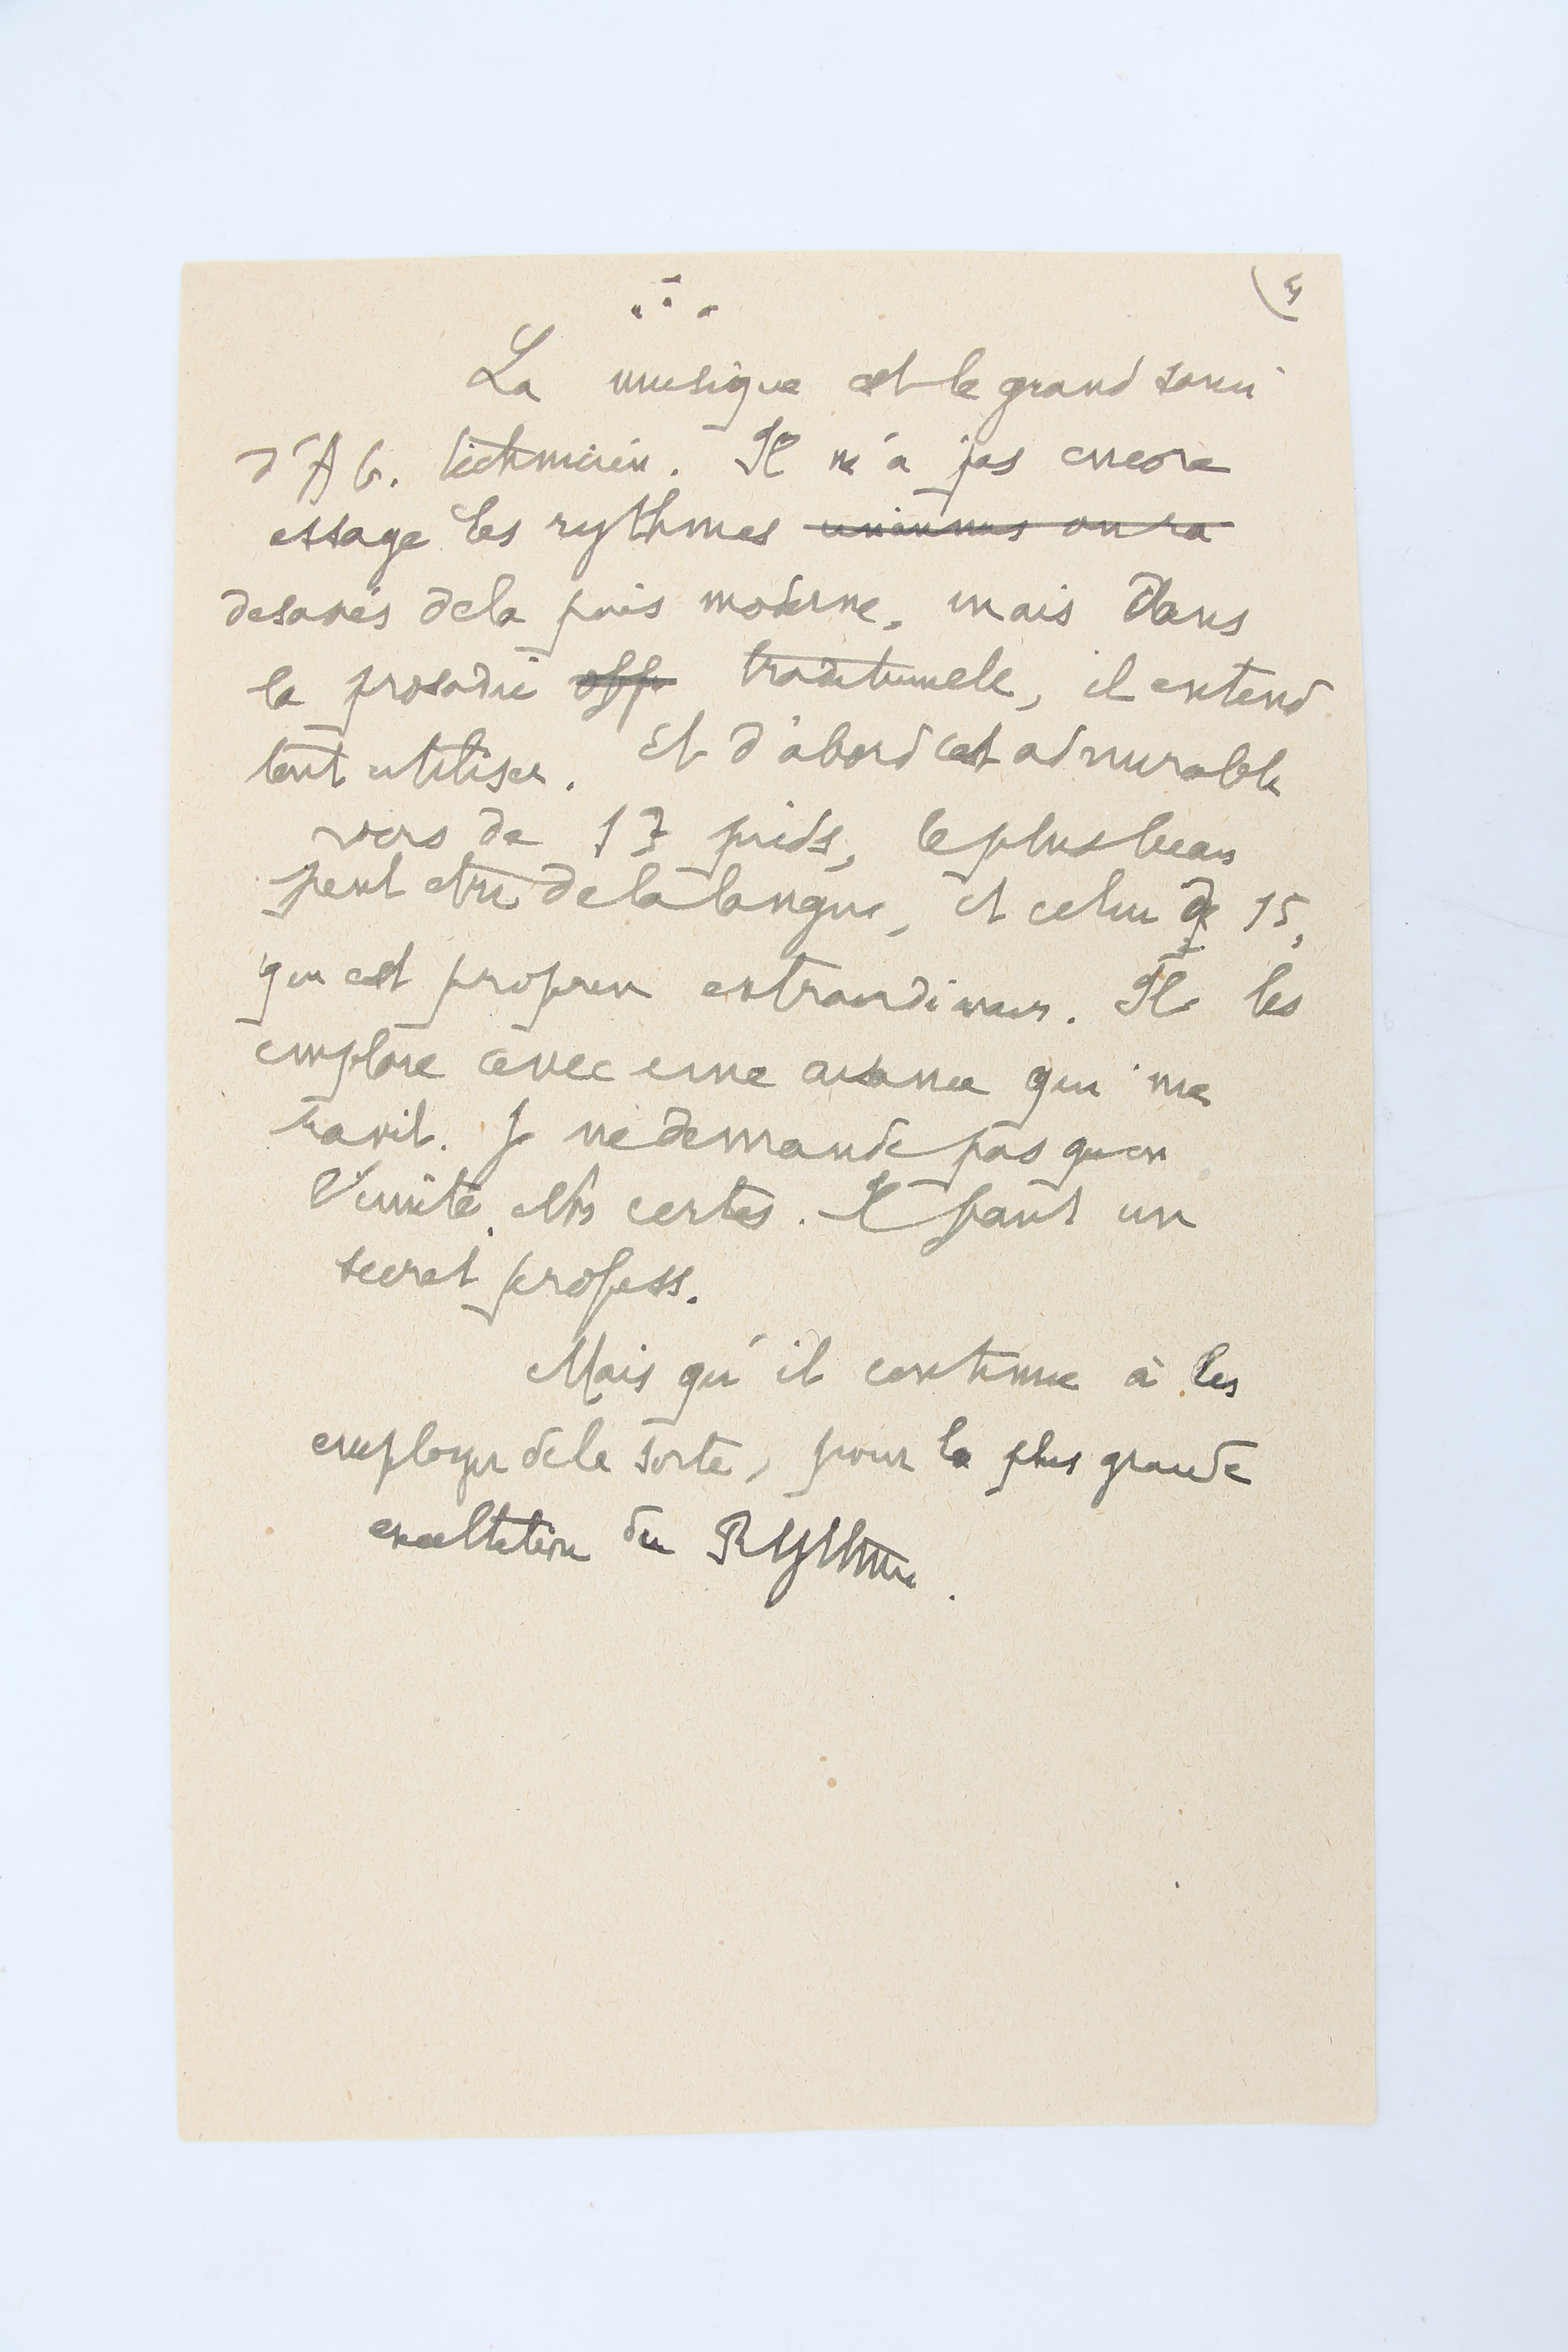 La musique est le grand souci
d'A G. technicien. Il n'a pas encore
essayé les rythmes
désaxés de la poésie moderne, mais dans
la prosodie traditionnelle, il entend
tout utiliser. Et d'abord cet admirable
vers de 13 pieds, le plus beau
peut être de la langue, et celui de 15,
qui est propren extraordinaire. Il les
emploie avec une aisance qui me
ravit. Je ne demande pas qu'on
l'imite, oh certes. Il faut un
secret profess.
Mais qu'il continue à les
employer de la sorte, pour la plus grande
exaltation du Rythme.